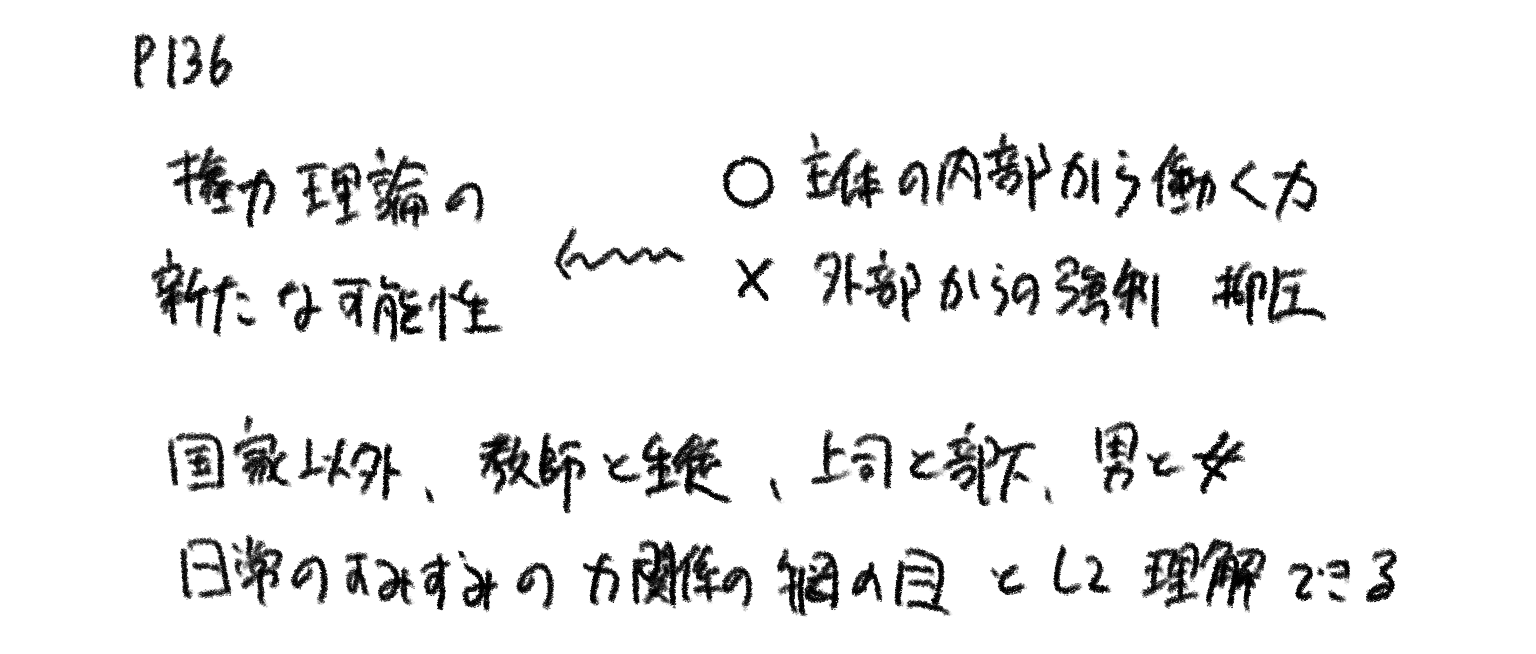 P136
権力理論の
新たな可能性
○ 主体の内部から働く力
× 外部からの強制 抑圧
国家以外、教師と生徒、上司と部下、男と女
日常のすみずみの力関係の網の目として理解できる